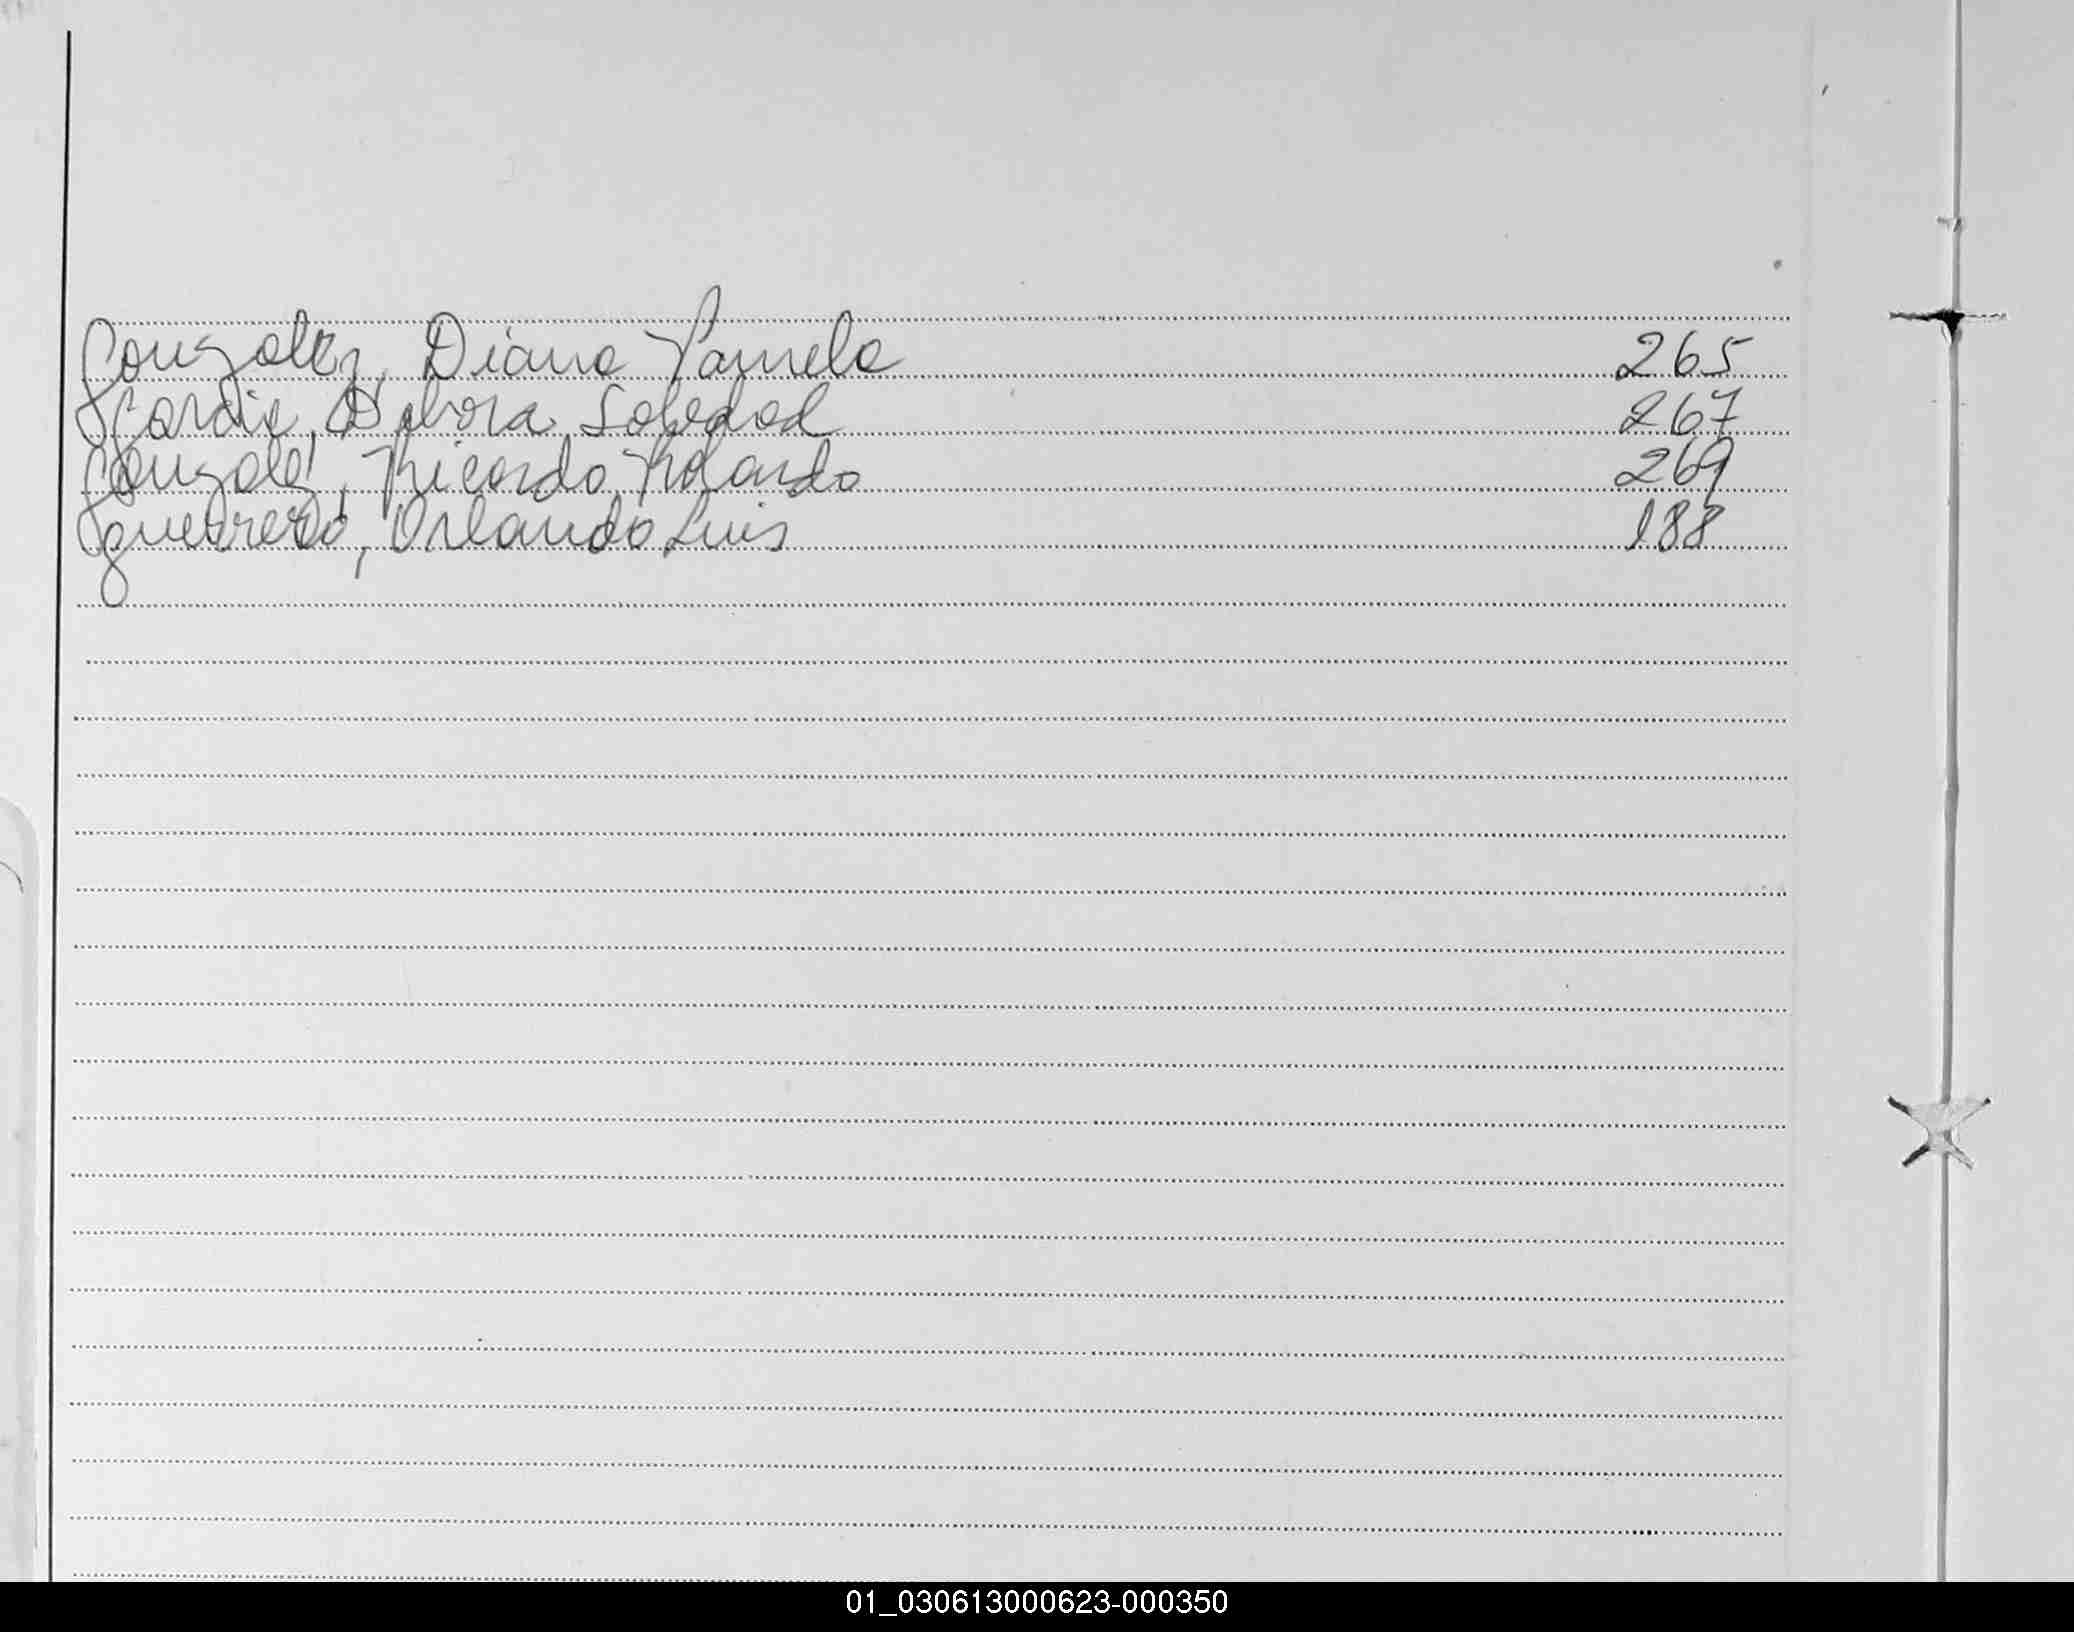 Gonzalez, Diana Pamela 265
Garcia, Debora Soledad 267
Gonzalez, Ricardo Rolando 269
Guerrero, Orlando Luis 188
01_030613000623-000350